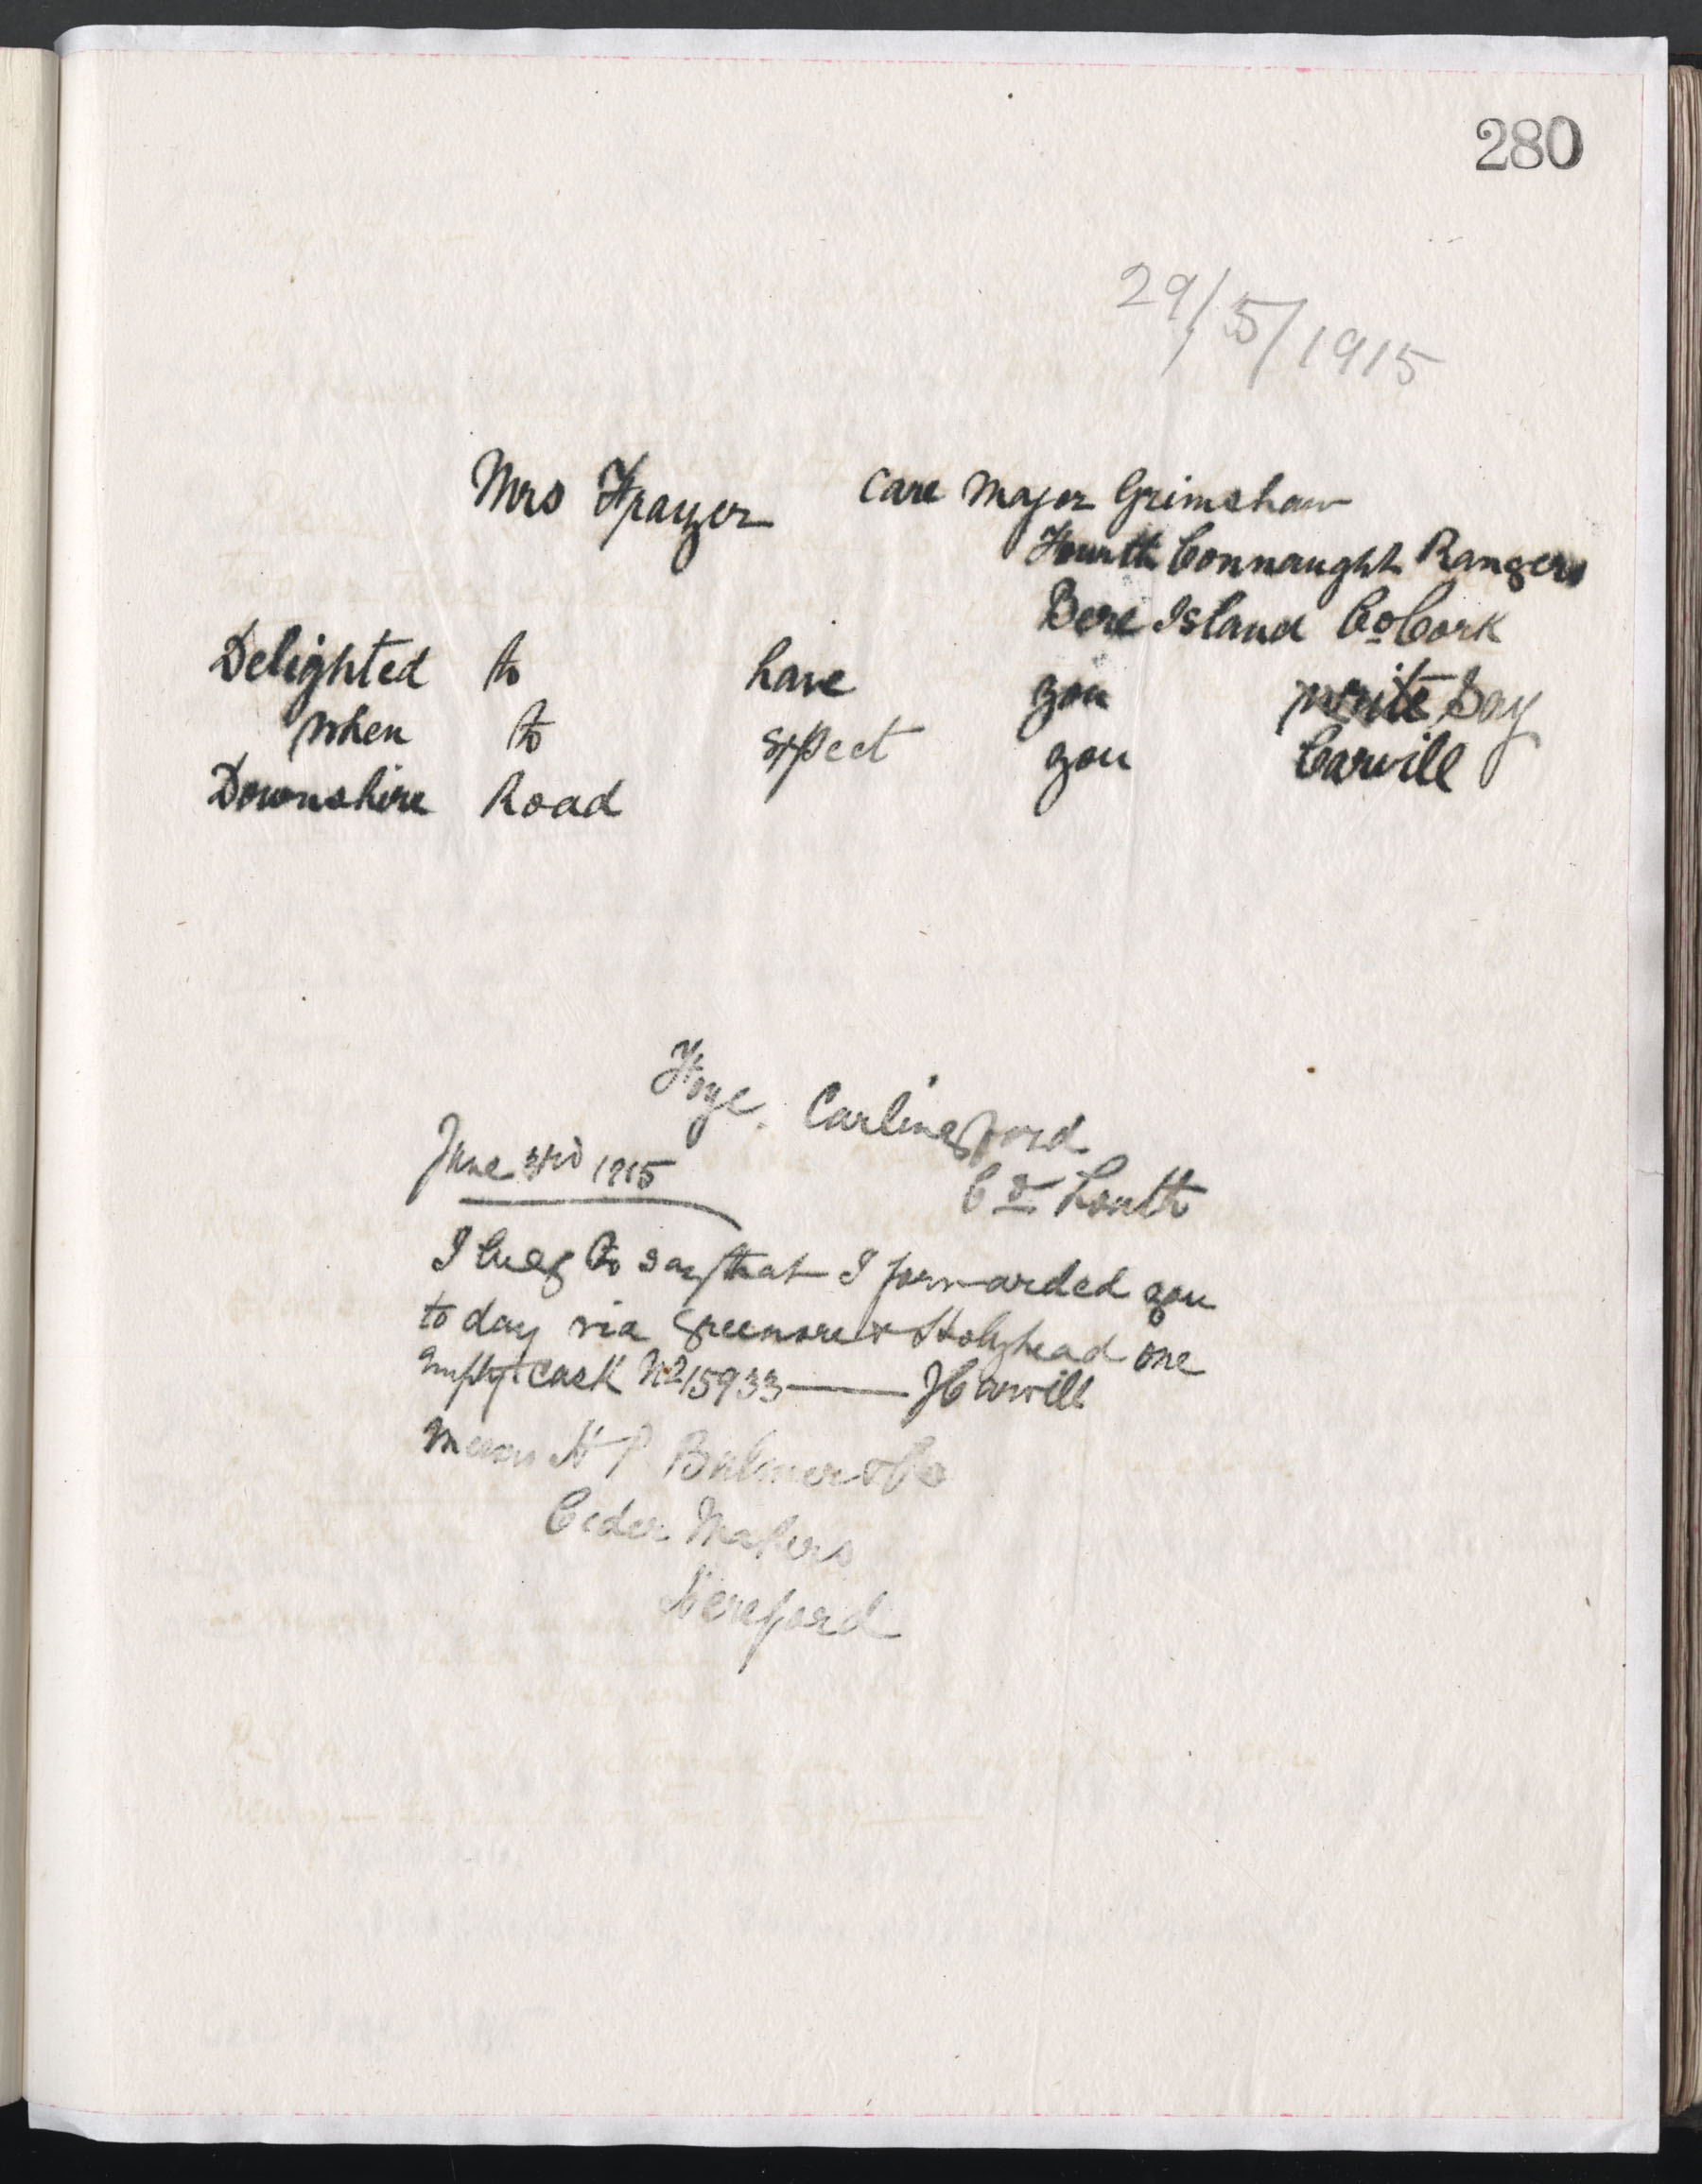 280
29/5/1915
Mrs Frazer care Major Grimshaw
Fourth Connaught Rangers
Bere Island Co Cork
Delighted to have you write say
when to expect you Carvill
Downshire Road
Carlingford
June 3rd 1915
Co Louth
I beg to say that I forwarded you
to day via Greenore & Holyhead one
empty cask No 15933 — J Carvill
Messrs H P Bulmer & Co
Cider Makers
Hereford